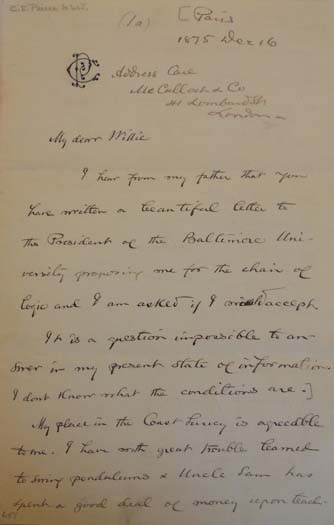 C.S. Peirce to W.J.
(1a) [Paris
1875 Dec 16
Address Care
McCulloch & Co
41 Lombard St
London
My dear Willie
I hear from my father that you
have written a beautiful letter to
the President of the Baltimore Uni-
versity proposing me for the chair of
logic and I am asked if I would accept
It is a question impossible to an-
swer in my present state of information.
I dont know what the conditions are.]
My place in the Coast Survey is agreeable
to me. I have with great trouble learned
to swing pendulums & Uncle Sam has
spent a good deal of money upon teach-